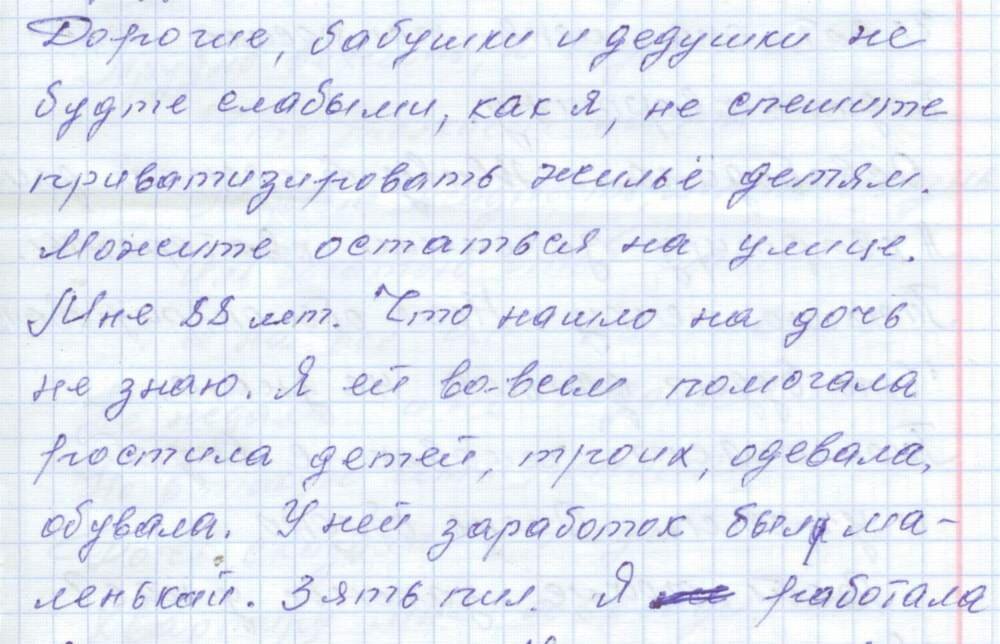 Дорогие, бабушки и дедушки не
будте слабыми, как я, не спешите
приватизировать жильё детям.
Можите остаться на улице.
Мне 88 лет. Что нашло на дочь
не знаю. Я ей во-всем помогала
ростила детей, троих, одевала,
обувала. У ней заработок был ма-
ленькай. Зять пил. Я работала